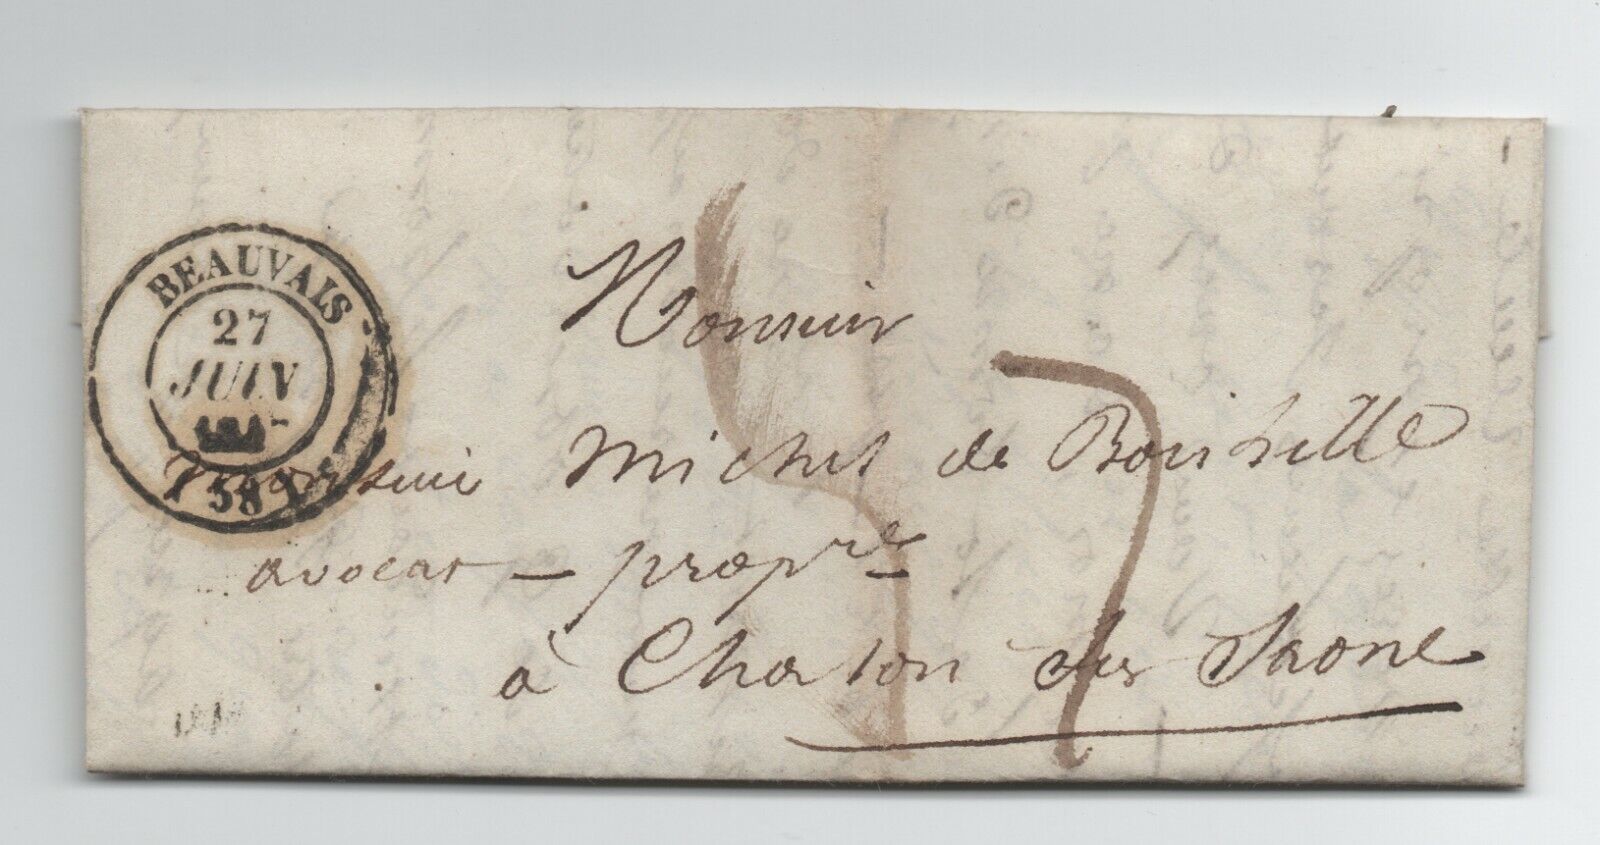 BEAUVAIS
27
JUIN
(58)
Monsieur
monsieur Michel de
avocat - propre
à Chalon sur Saone
7